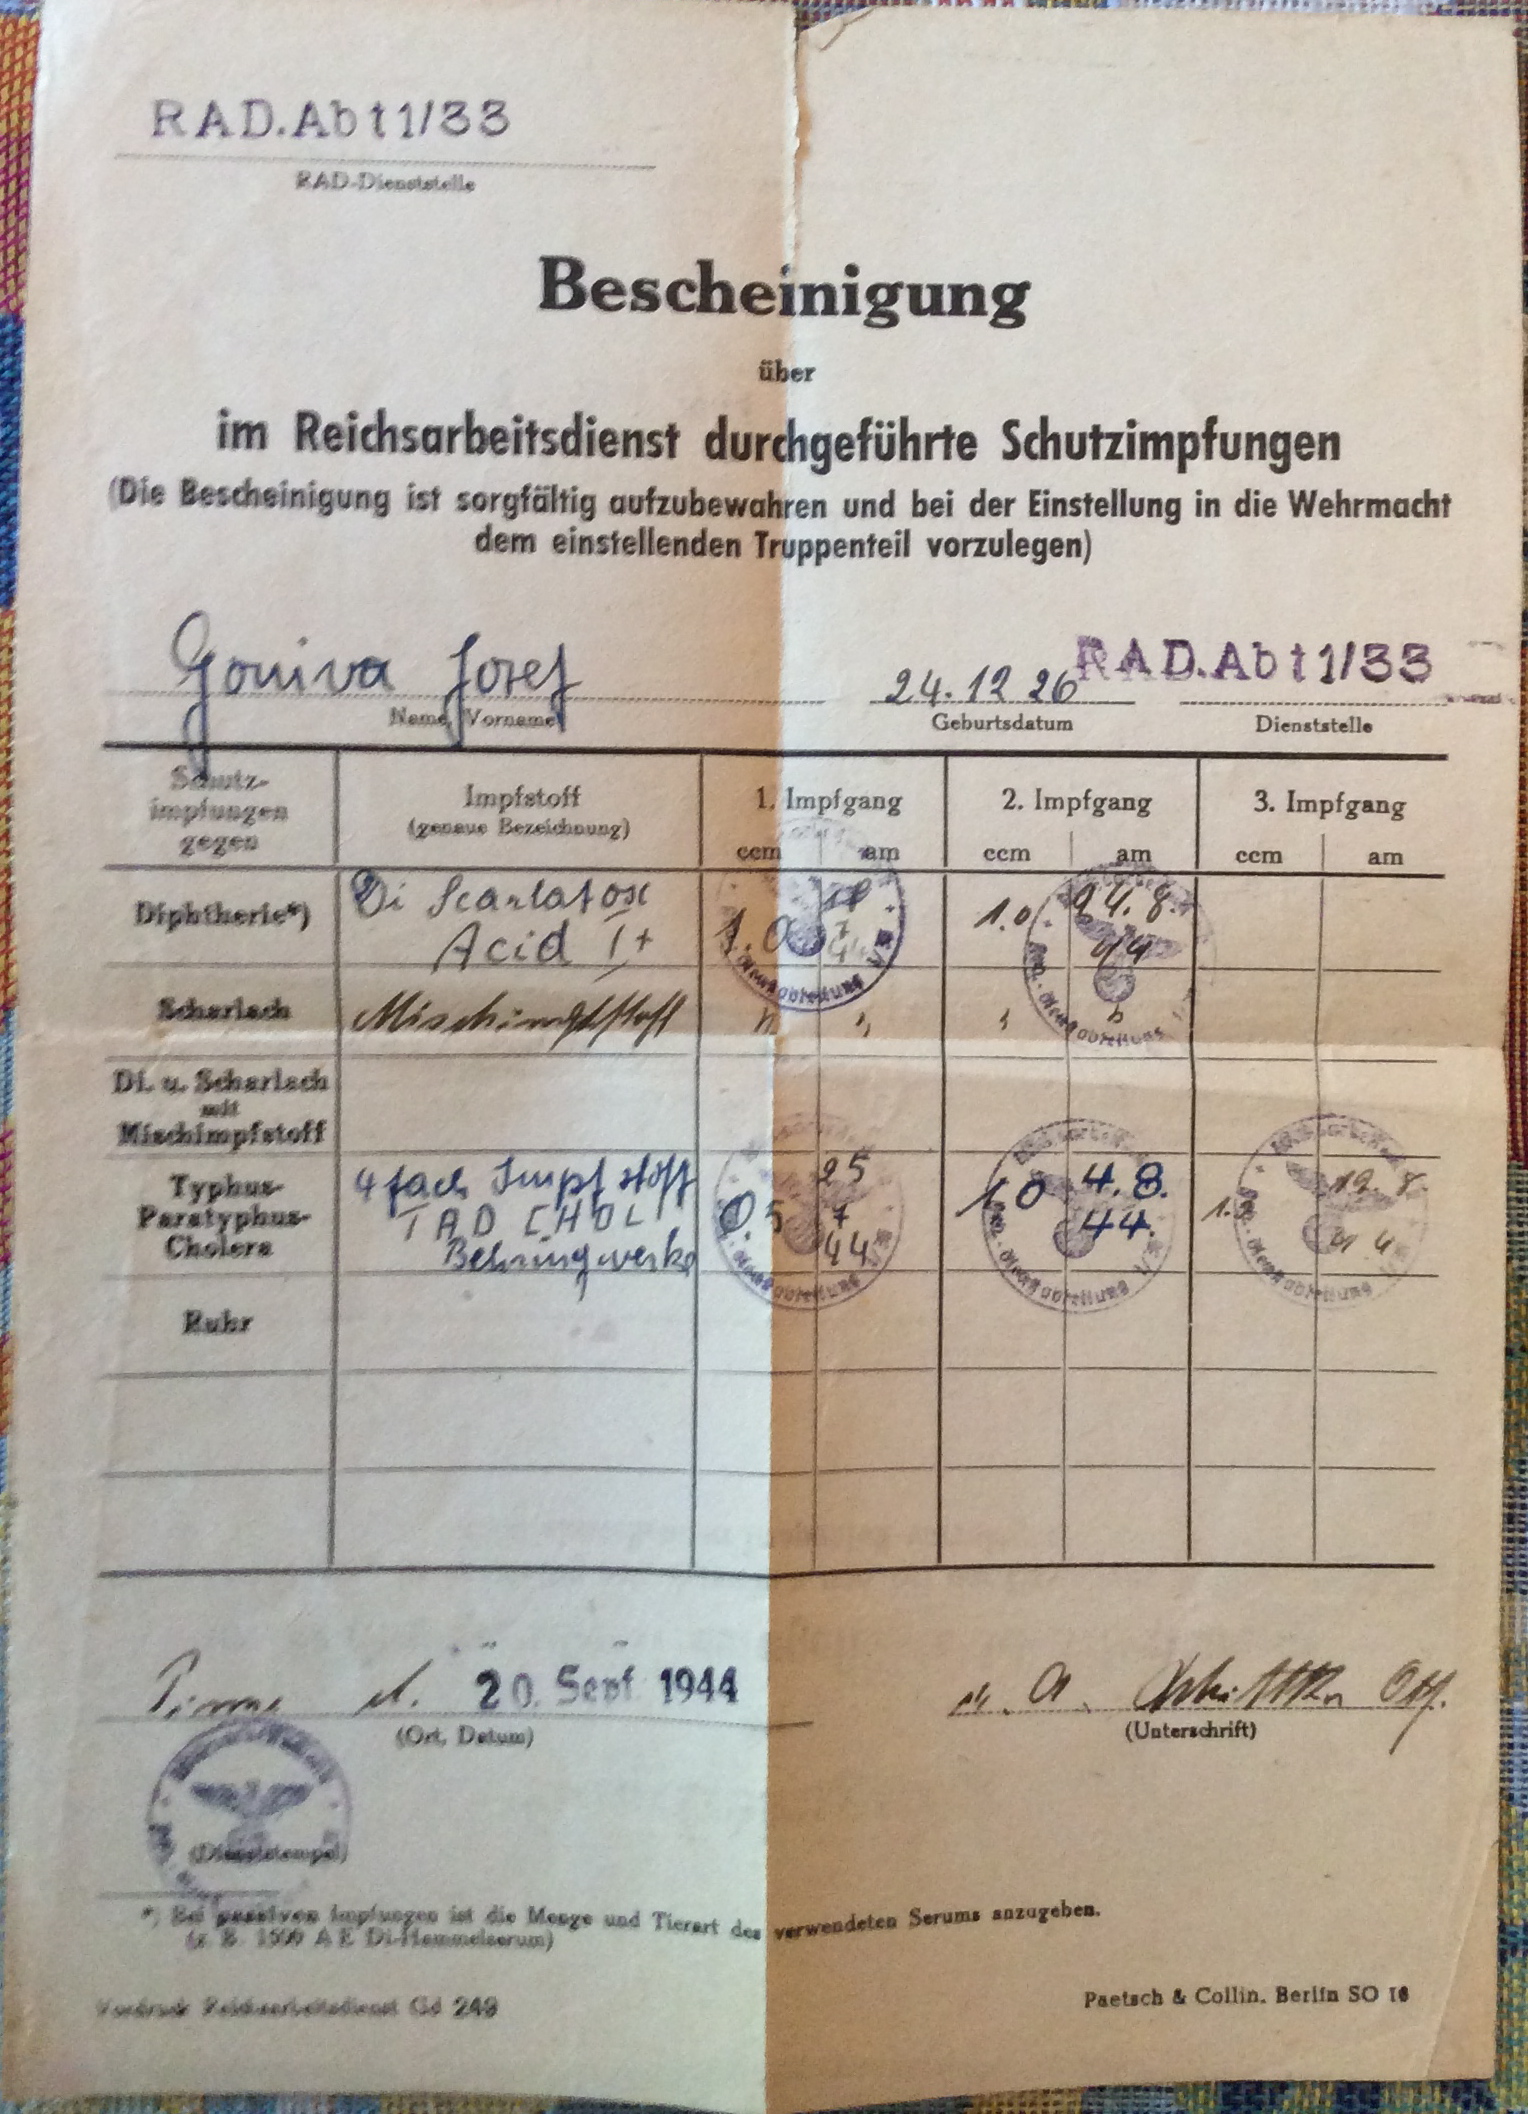 RAD.Abt1/33
RAD-Dienststelle
Bescheinigung
über
im Reichsarbeitsdienst durchgeführte Schutzimpfungen
(Die Bescheinigung ist sorgfältig aufzubewahren und bei der Einstellung in die Wehrmacht
dem einstellenden Truppenteil vorzulegen)
Goniva Josef 24.12 26 RAD.Abt1/33
Name, Vorname Geburtsdatum Dienststelle
Schutz-
impfungen
gegen
Impfstoff
(genaue Bezeichnung)
1. Impfgang 2. Impfgang 3. Impfgang
ccm am ccm am ccm am
Diphtherie*)
Di Scarlatox
Acid I+
1.0
1.0 24.8.
44
Scharlach Mischimpfstoff
Di. u. Scharlach
mit
Mischimpfstoff
Typhus-
Paratyphus-
Cholera
4 fach Impfstoff
TAD CHOL
Behringwerke
0.5 25
7
44
1.0 4.8.
44.
Ruhr
d. 20. Sept 1944
(Ort, Datum) (Unterschrift)
(Dienststempel)
*) Bei passiven Impfungen ist die Menge und Tierart des verwendeten Serums anzugeben.
(z. B. 1500 A E Di-Hammelserum)
Vordruck Reichsarbeitsdienst Gd 249
Paetsch & Collin, Berlin SO 16